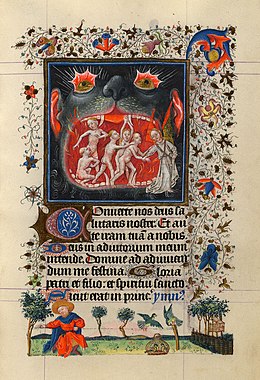 Conuerte nos deus sa
lutaris noster. Et auer
te iram tuā a nobis.
Deus in adiutorium meum
intende. Domine ad adiuuan
dum me festina. Gloria
patri et filio: et spiritui sancto
Sicut erat in princ.